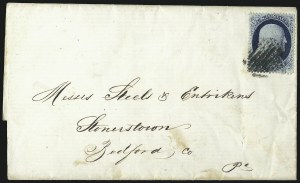 Messrs Steels & Entrikens
Stonerstown
Bedford, Co
Pa